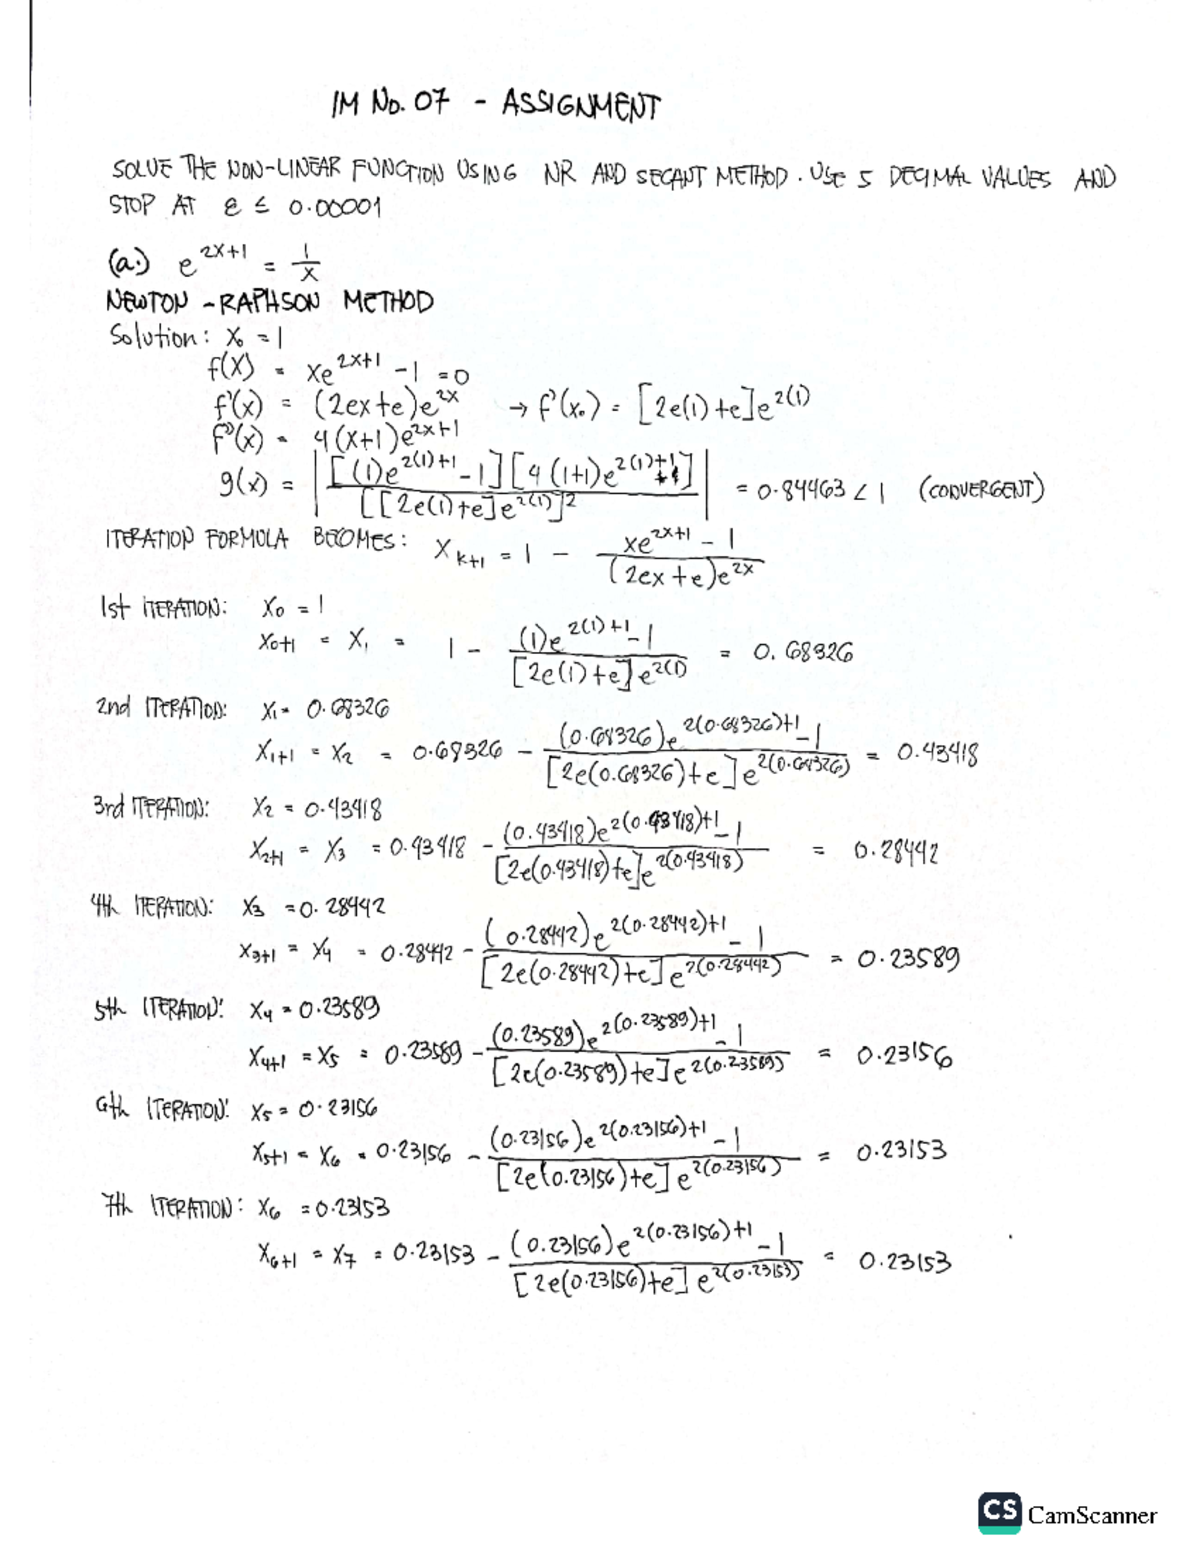 IM No. 07 - ASSIGNMENT
SOLVE THE NON-LINEAR FUNCTION USING NR AND SECANT METHOD. USE 5 DECIMAL VALUES AND
STOP AT ε ≤ 0.00001
(a.) e^{2x+1} = 1/x
NEWTON - RAPHSON METHOD
Solution: x₀ = 1
f(x) = xe^{2x+1} - 1 = 0
f'(x) = (2ex+e)e^{2x} → f'(x₀) = [2e(1)+e]e^{2(1)}
f''(x) = 4(x+1)e^{2x+1}
g(x) = |[(1)e^{2(1)+1} - 1][4(1+1)e^{2(1)+1}] / [[2e(1)+e]e^{2(1)}]²| = 0.84463 < 1 (CONVERGENT)
ITERATION FORMULA BECOMES: x_{k+1} = 1 - (xe^{2x+1} - 1) / ((2ex+e)e^{2x})
1st ITERATION: x₀ = 1
x₀₊₁ = x₁ = 1 - ((1)e^{2(1)+1} - 1) / ([2e(1)+e]e^{2(1)}) = 0.68326
2nd ITERATION: x₁ = 0.68326
x₁₊₁ = x₂ = 0.68326 - ((0.68326)e^{2(0.68326)+1} - 1) / ([2e(0.68326)+e]e^{2(0.68326)}) = 0.43418
3rd ITERATION: x₂ = 0.43418
x₂₊₁ = x₃ = 0.43418 - ((0.43418)e^{2(0.43418)+1} - 1) / ([2e(0.43418)+e]e^{2(0.43418)}) = 0.28442
4th ITERATION: x₃ = 0.28442
x₃₊₁ = x₄ = 0.28442 - ((0.28442)e^{2(0.28442)+1} - 1) / ([2e(0.28442)+e]e^{2(0.28442)}) = 0.23589
5th ITERATION: x₄ = 0.23589
x₄₊₁ = x₅ = 0.23589 - ((0.23589)e^{2(0.23589)+1} - 1) / ([2e(0.23589)+e]e^{2(0.23589)}) = 0.23156
6th ITERATION: x₅ = 0.23156
x₅₊₁ = x₆ = 0.23156 - ((0.23156)e^{2(0.23156)+1} - 1) / ([2e(0.23156)+e]e^{2(0.23156)}) = 0.23153
7th ITERATION: x₆ = 0.23153
x₆₊₁ = x₇ = 0.23153 - ((0.23156)e^{2(0.23156)+1} - 1) / ([2e(0.23156)+e]e^{2(0.23153)}) = 0.23153
CS CamScanner